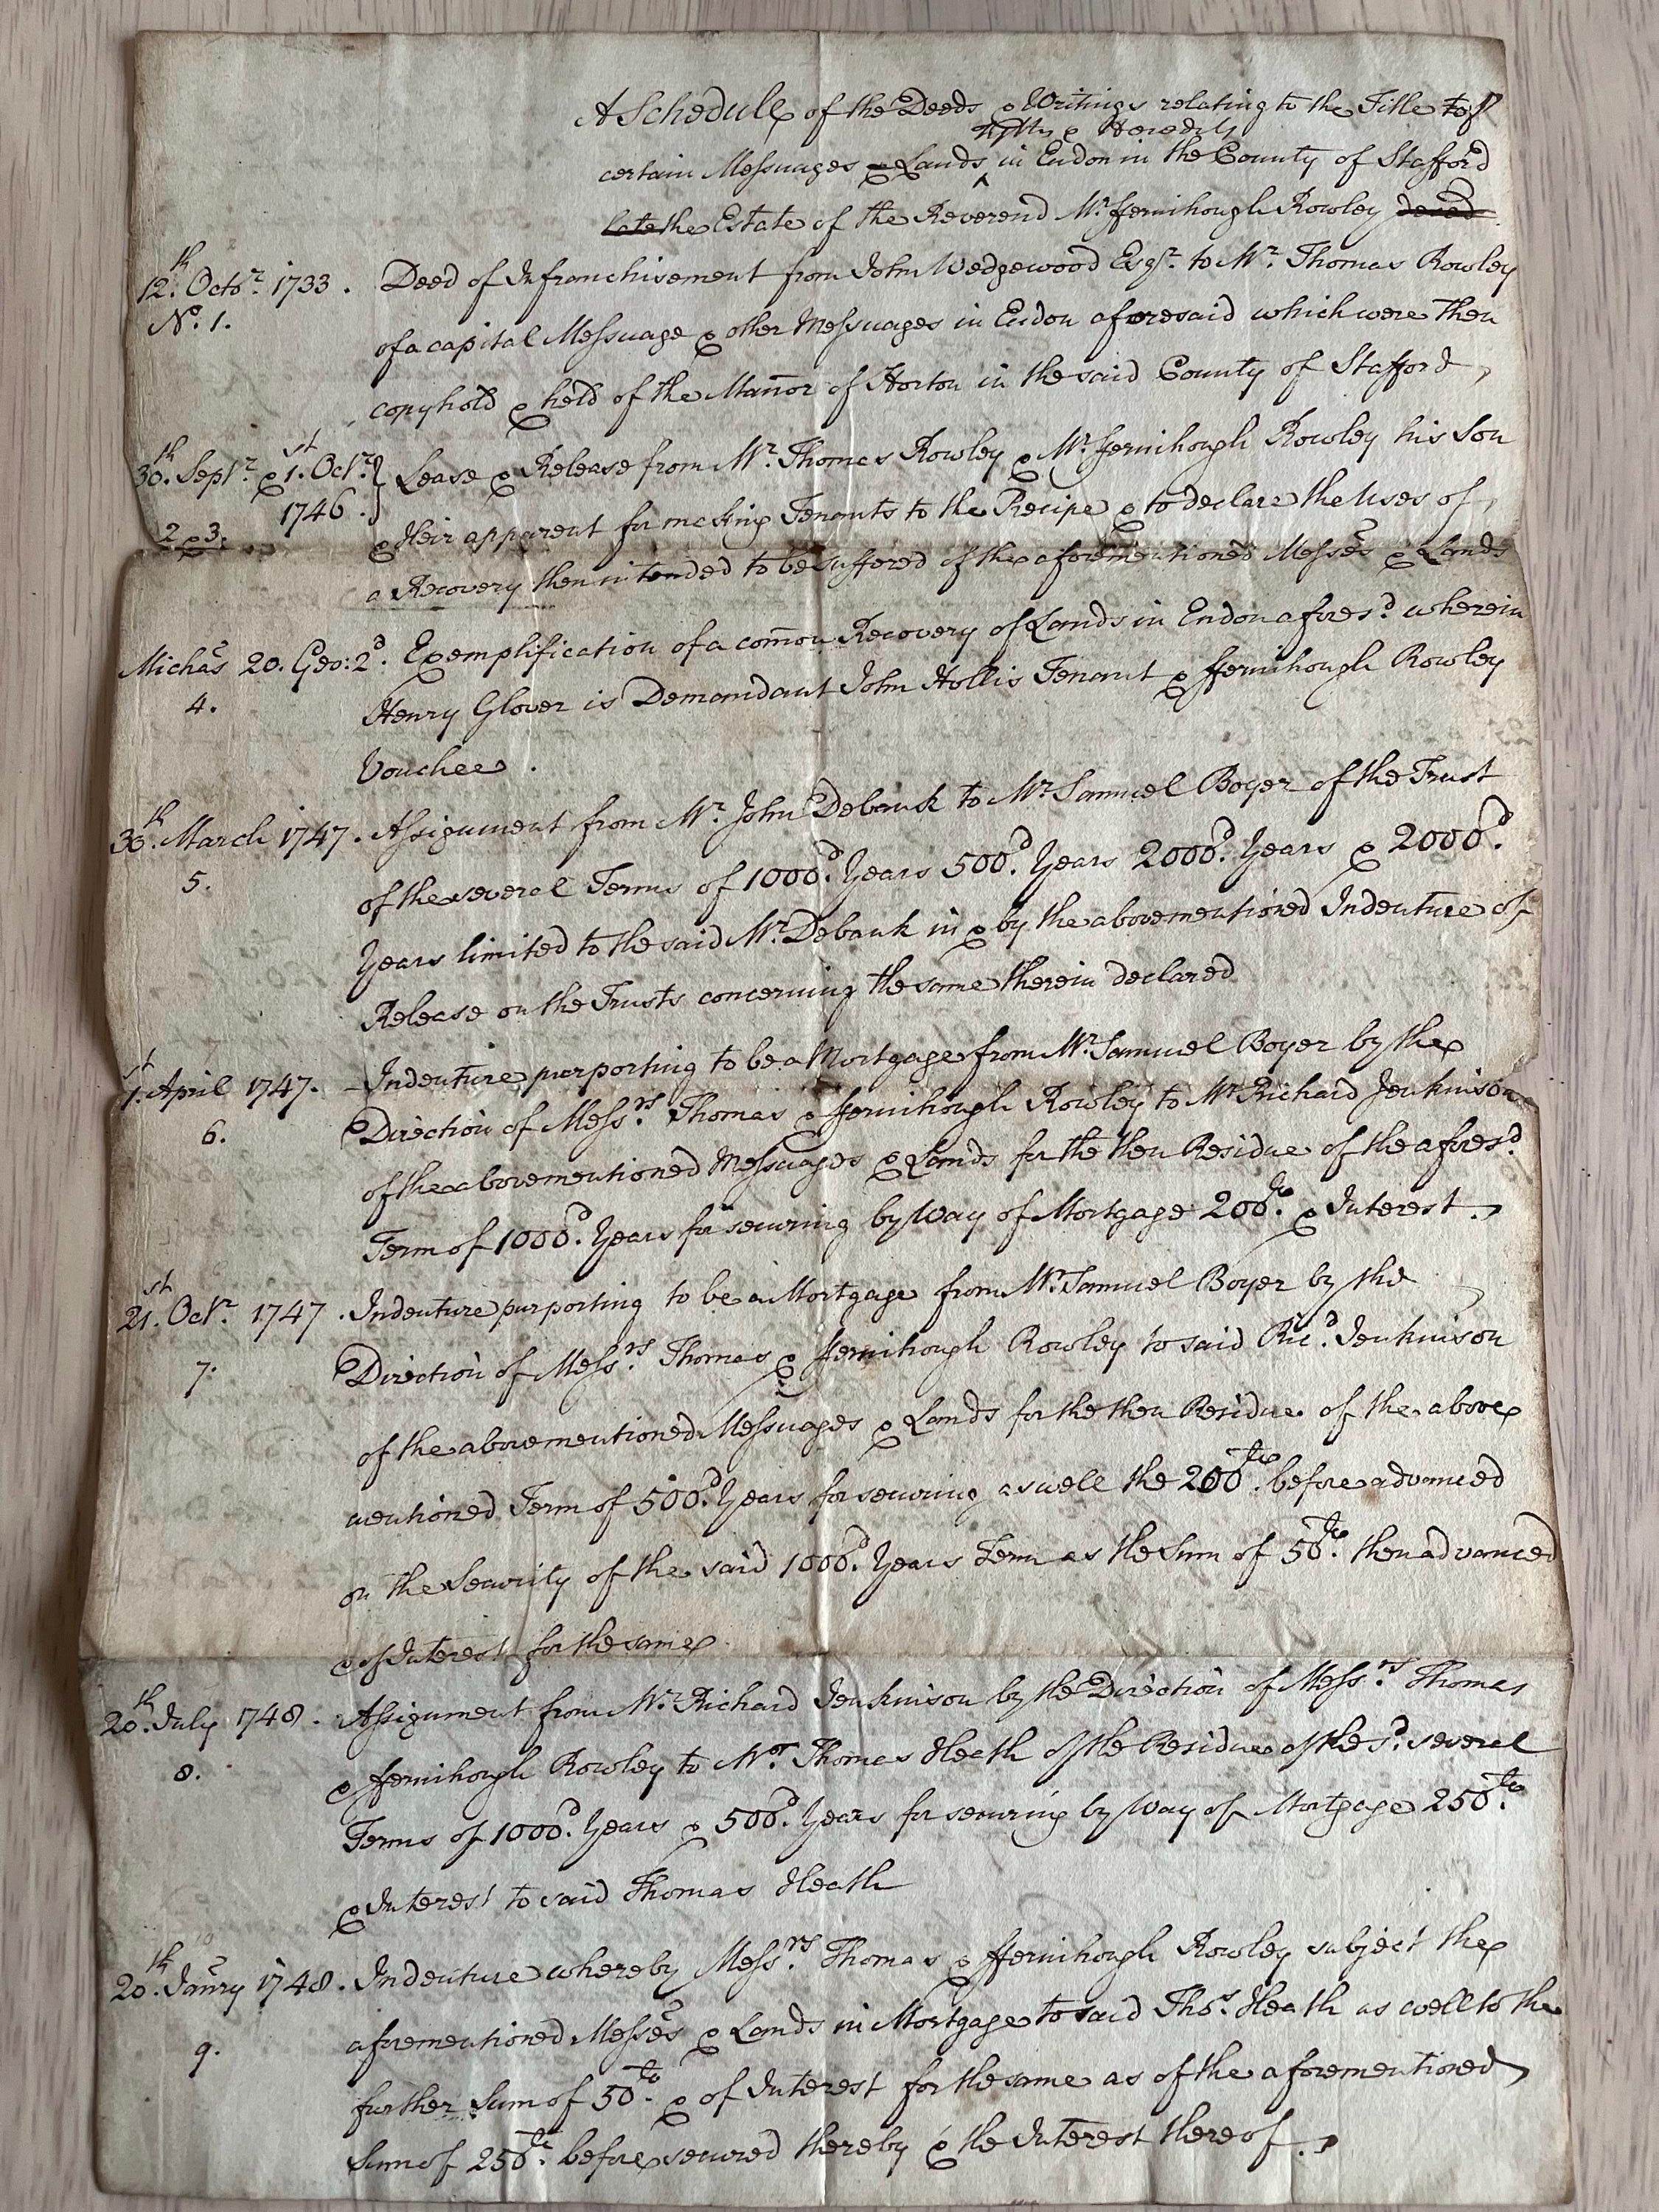 A Schedule of the Deeds & Writings relating to the Title to
Tyths & Heredits
certain Messuages & Lands ^ in Endon in the County of Stafford
late the Estate of the Reverend Mr. ffernihough Rowley deced
12th. Octor. 1733. Deed of Infranchisement from John Wedgewood Esqr. to Mr. Thomas Rowley
No. 1.
of a capital Messuage & other Messuages in Endon aforesaid which were then
copyhold & held of the Manor of Horton in the said County of Stafford
30th. Septr. & 1st. Octr. Lease & Release from Mr. Thomas Rowley & Mr. ffernihough Rowley his Son
1746.
2 & 3. & Heir apparent for making Tenants to the Precipe & to declare the Uses of
a Recovery then intended to be suffered of the aforementioned Messes & Lands
Michas 20. Geo: 2d. Exemplification of a common Recovery of Lands in Endon afores'd. wherein
4. Henry Glover is Demandant John Hollis Tenant & ffernihough Rowley
Vouchee.
30th. March 1747. Assignment from Mr. John Debank to Mr. Samuel Boyer of the Trust
5. of the several Terms of 1000d. Years 500d. Years 2000d. Years & 2000d.
Years limited to the said Mr. Debank in & by the abovementioned Indenture of
Release on the Trusts concerning the same therein declared
1st. April 1747. Indenture purporting to be a Mortgage from Mr. Samuel Boyer by the
6. Direction of Messrs. Thomas & ffernihough Rowley to Mr. Richard Jenkinson
of the abovementioned Messuages & Lands for the then Residue of the afores'd.
Term of 1000d. Years for securing by Way of Mortgage 200£. & Interest.
21st. Octr. 1747. Indenture purporting to be a Mortgage from Mr. Samuel Boyer by the
7. Direction of Messrs. Thomas & ffernihough Rowley to said Ricd. Jenkinson
of the abovementioned Messuages & Lands for the then Residue of the above
mentioned Term of 500d. Years for securing as well the 200£. before advanced
on the Security of the said 1000d. Years Term as the Sum of 50£. then advanced
& of Interest for the same
20th. July 1748. Assignment from Mr. Richard Jenkinson by the Direction of Messrs. Thomas
8. & ffernihough Rowley to Mr. Thomas Heath of the Residue of the sd. several
Terms of 1000d. Years & 500d. Years for securing by Way of Mortgage 250£.
& Interest to said Thomas Heath
20th. Janry 1748. Indenture whereby Messrs. Thomas & ffernihough Rowley subject the
9. aforementioned Messes & Lands in Mortgage to said Thos. Heath as well to the
further Sum of 50£. & of Interest for the same as of the aforementioned
Sum of 250£. before secured thereby & the Interest thereof.